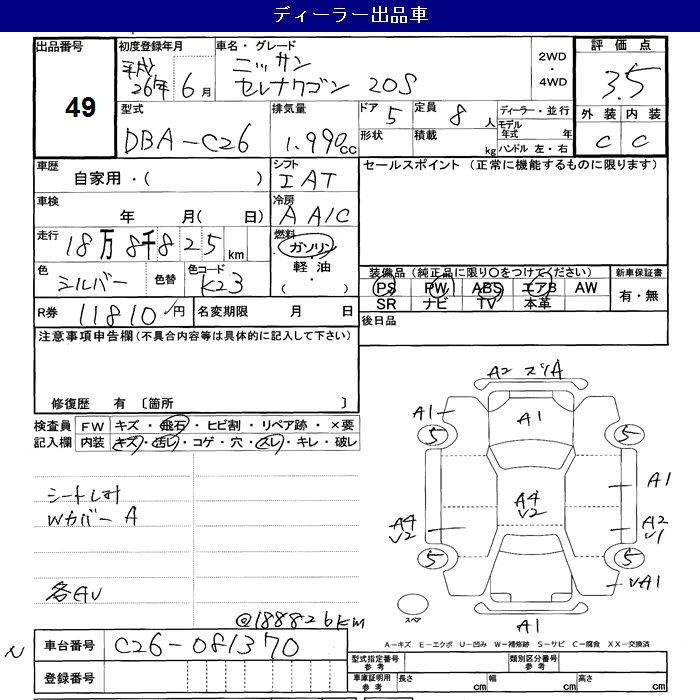 ディーラー出品車
出品番号 49
初度登録年月 平成 26年 6月
車名・グレード ニッサン セレナワゴン 20S
2WD ・ 4WD
評価点 3.5
外装 内装
C C
型式 DBA-C26
排気量 1.990cc
ドア 5 定員 8人
形状 積載 kg
ディーラー・並行
モデル年式 年
ハンドル 左・右
車歴 自家用・( )
シフト IAT
セールスポイント (正常に機能するものに限ります)
車検 年 月( 日)
冷房 AAC
走行 18万8千825km
燃料 ガソリン・軽油・( )
色 シルバー 色替 色コード K23
装備品 (純正品に限り○をつけてください)
PS PW ABS エアB AW
SR ナビ TV 本革
新車保証書 有・無
R券 11810円 名変期限 月 日
後日品
注意事項申告欄 (不具合内容等は具体的に記入して下さい)
修復歴 有 〔箇所 〕
検査員 FW キズ・飛石・ヒビ割・リペア跡・×要
記入欄 内装 キズ・汚レ・コゲ・穴・スレ・キレ・破レ
シートしみ
Wカバー A
各AU
@188826km
A2 スリA
A1 A1
5 5
A1
A4 V2
A4 V2
A2 V1
5 5
VA1
スペア
A1
A－キズ E－エクボ U－凹み W－補修跡 S－サビ C－腐食 XX－交換済
N 車台番号 C26-081370
登録番号
型式指定番号 参考 類別区分番号 参考
車庫証明用 参考 長さ cm 幅 cm 高さ cm